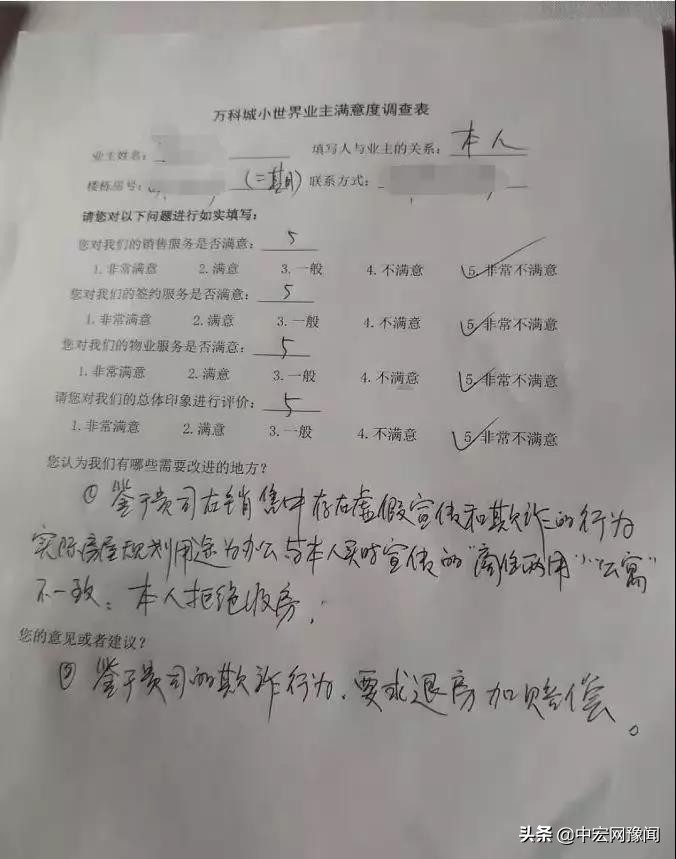 万科城小世界业主满意度调查表
业主姓名： 填写人与业主的关系：本人
楼栋房号： (二期) 联系方式：
请您对以下问题进行如实填写：
您对我们的销售服务是否满意：5
1.非常满意 2.满意 3.一般 4.不满意 5.非常不满意
您对我们的签约服务是否满意：5
1.非常满意 2.满意 3.一般 4.不满意 5.非常不满意
您对我们的物业服务是否满意：5
1.非常满意 2.满意 3.一般 4.不满意 5.非常不满意
请您对我们的总体印象进行评价：5
1.非常满意 2.满意 3.一般 4.不满意 5.非常不满意
您认为我们有哪些需要改进的地方？
① 鉴于贵司在销售中存在虚假宣传和欺诈的行为
实际房屋规划用途为办公与本人买时宣传的“商住两用”“公寓”
不一致，本人拒绝收房，
您的意见或者建议？
② 鉴于贵司的欺诈行为，要求退房加赔偿。
头条 @中宏网豫闻